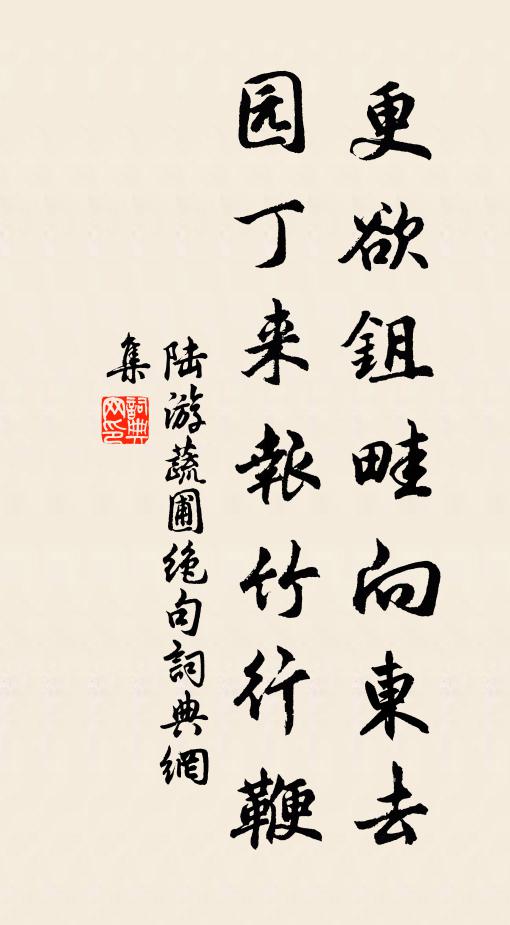 更欲鉏畦向東去
园丁来報竹行鞭
陆游蔬圃绝句詞典網
集
詞典网印